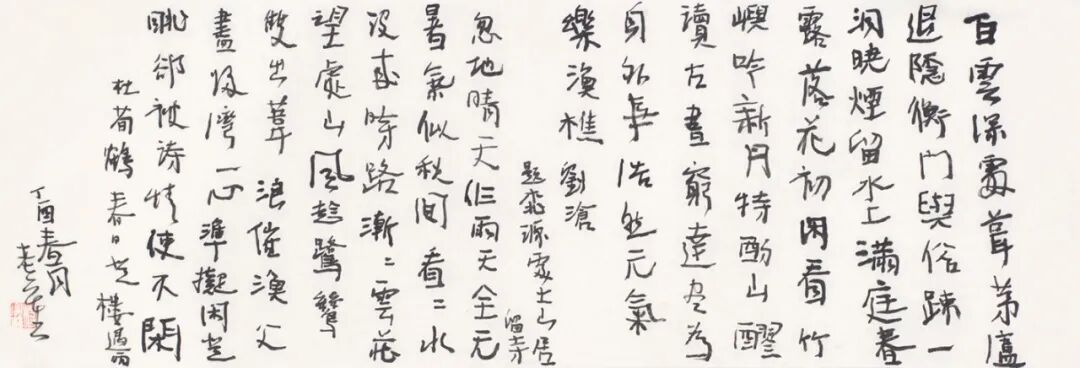 白雲深處葺茅廬
退隱衡門與俗疎一
洞曉煙留水上滿庭春
露落花初閑看竹
嶼吟新月特酌山醪
讀古書窮達尽為
身外事浩然元氣
樂漁樵 劉滄
題桃源處士山居
留寄
忽地晴天作雨天全无
暑氣似秋間看〻水
没來時路漸〻雲藏
望處山風趁鷺鷥
雙出葦浪催漁父
盡歸灣一心準擬閑登
眺卻被詩情使不閑
杜荀鶴春日登樓遇雨
丁酉春月